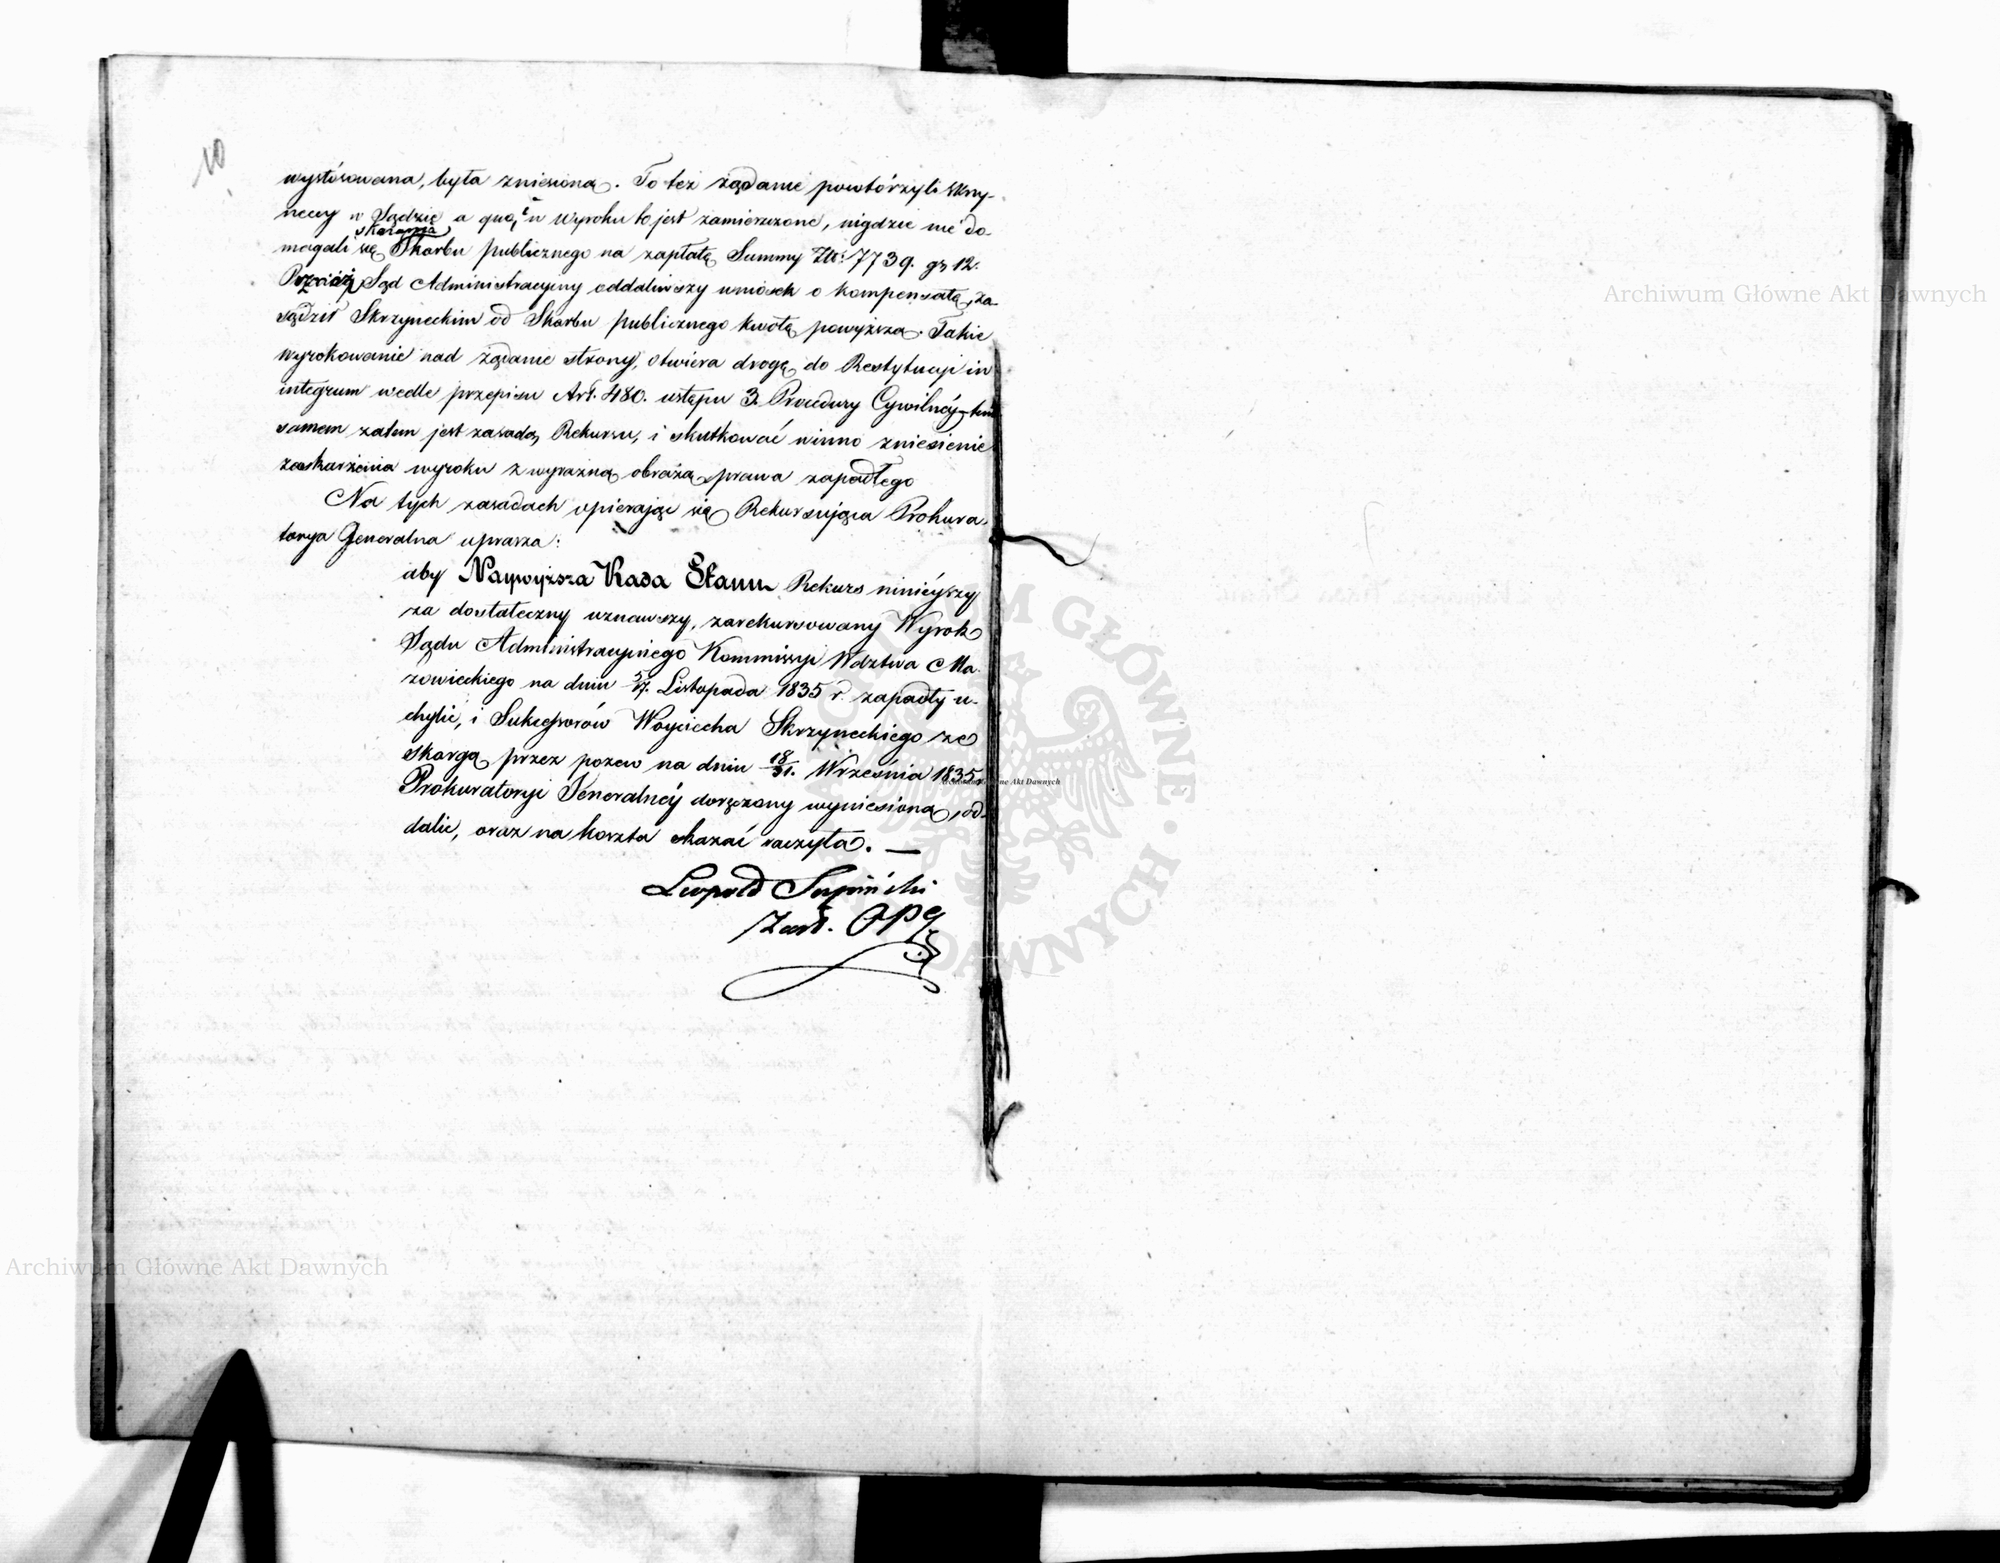 10
wystósowana, była zniesioną. To też żądanie powtórzyli Skrzy-
neccy w Sądzie a quo, i w Wyroku to jest zamieszczone, nigdzie nie do-
skazania
magali się Skarbu publicznego na zapłatę Summy Złt: 7739. gr 12.
Przecież Sąd Administracyiny oddaliwszy wniosek o kompensatę, za-
sądził Skrzyneckim od Skarbu publicznego kwotę powyższą. Takie
wyrokowanie nad żądanie strony, otwiera drogę do Restytucji in
integrum wedle przepisu Art. 480. ustępu 3. Procedury Cywilnéy, tem
samem zatem jest zasadą Rekursu, i skutkować winno zniesienie
zaskarżenia wyroku z wyraźną obrazą prawa zapadłego
Na tych zasadach opierając się Rekursująca Prokura-
torya Generalna uprasza:
aby Naywyższa Rada Stanu Rekurs ninieyszy
za dostateczny uznawszy, zarekursowany Wyrok
Sądu Administracyinego Kommissyi Wdztwa Ma-
zowieckiego na dniu 5/17. Listopada 1835 r. zapadły u-
chylić, i Sukcessorów Woyciecha Skrzyneckiego ze
skargą przez pozew na dniu 18/31. Września 1835
Prokuratoryi Jeneralnéy doręczony wyniesioną, od-
dalić, oraz na koszta skazać raczyła. —
Leopold Supiński
Zast. OPG
Archiwum Główne Akt Dawnych
Archiwum Główne Akt Dawnych